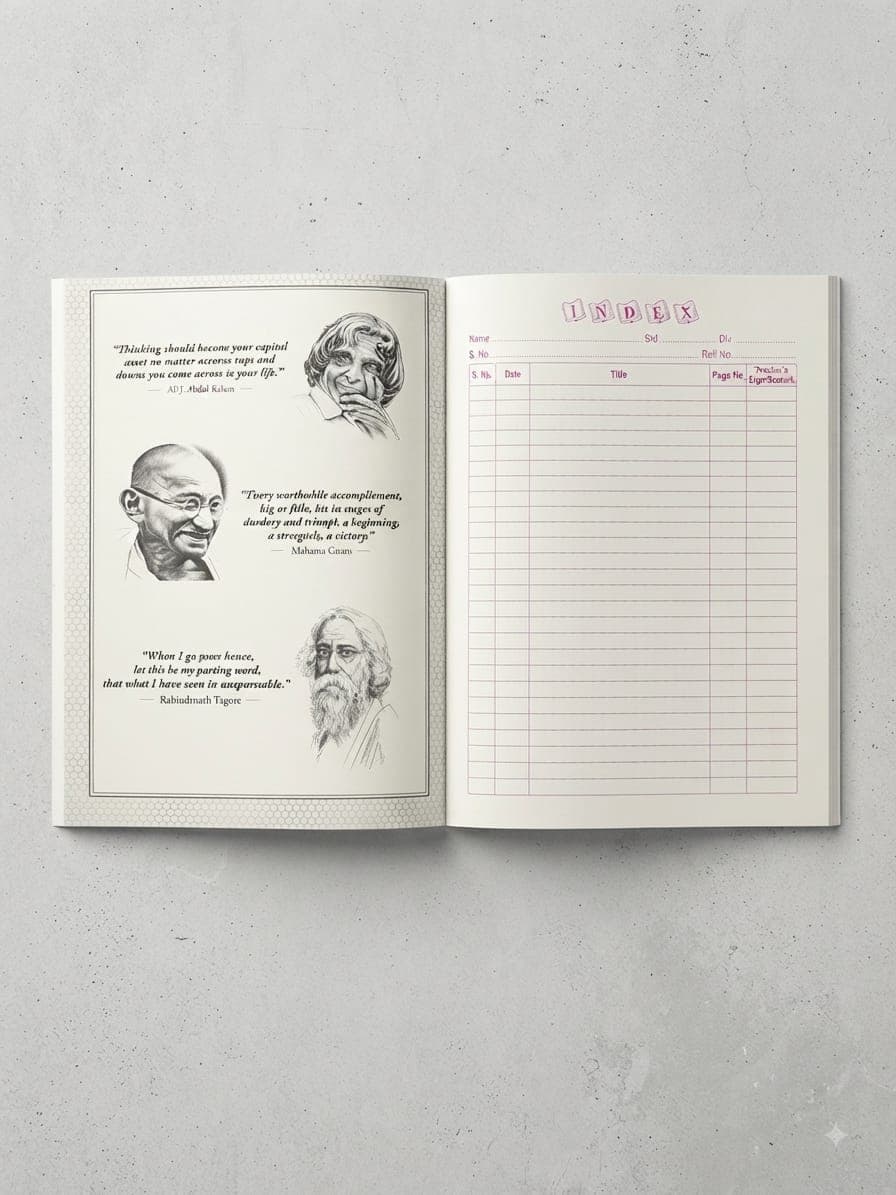 "Thinking should become your capital
asset no matter across tups and
downs you come across is your life."
— ADJ. Abdul Kalem —
"Tvery worthwhile accompliement,
big or flile, hit is stages of
durdery and triumpt, a beginning,
a streeguels, a victory"
— Mahama Gnans —
"Whon I go poser hence,
let this be my parting word,
that what I have seen in anepursuable."
— Rabiudmath Tagore —
INDEX
Name Std Div
S. No. Roll No.
S. No. Date Title Page No.